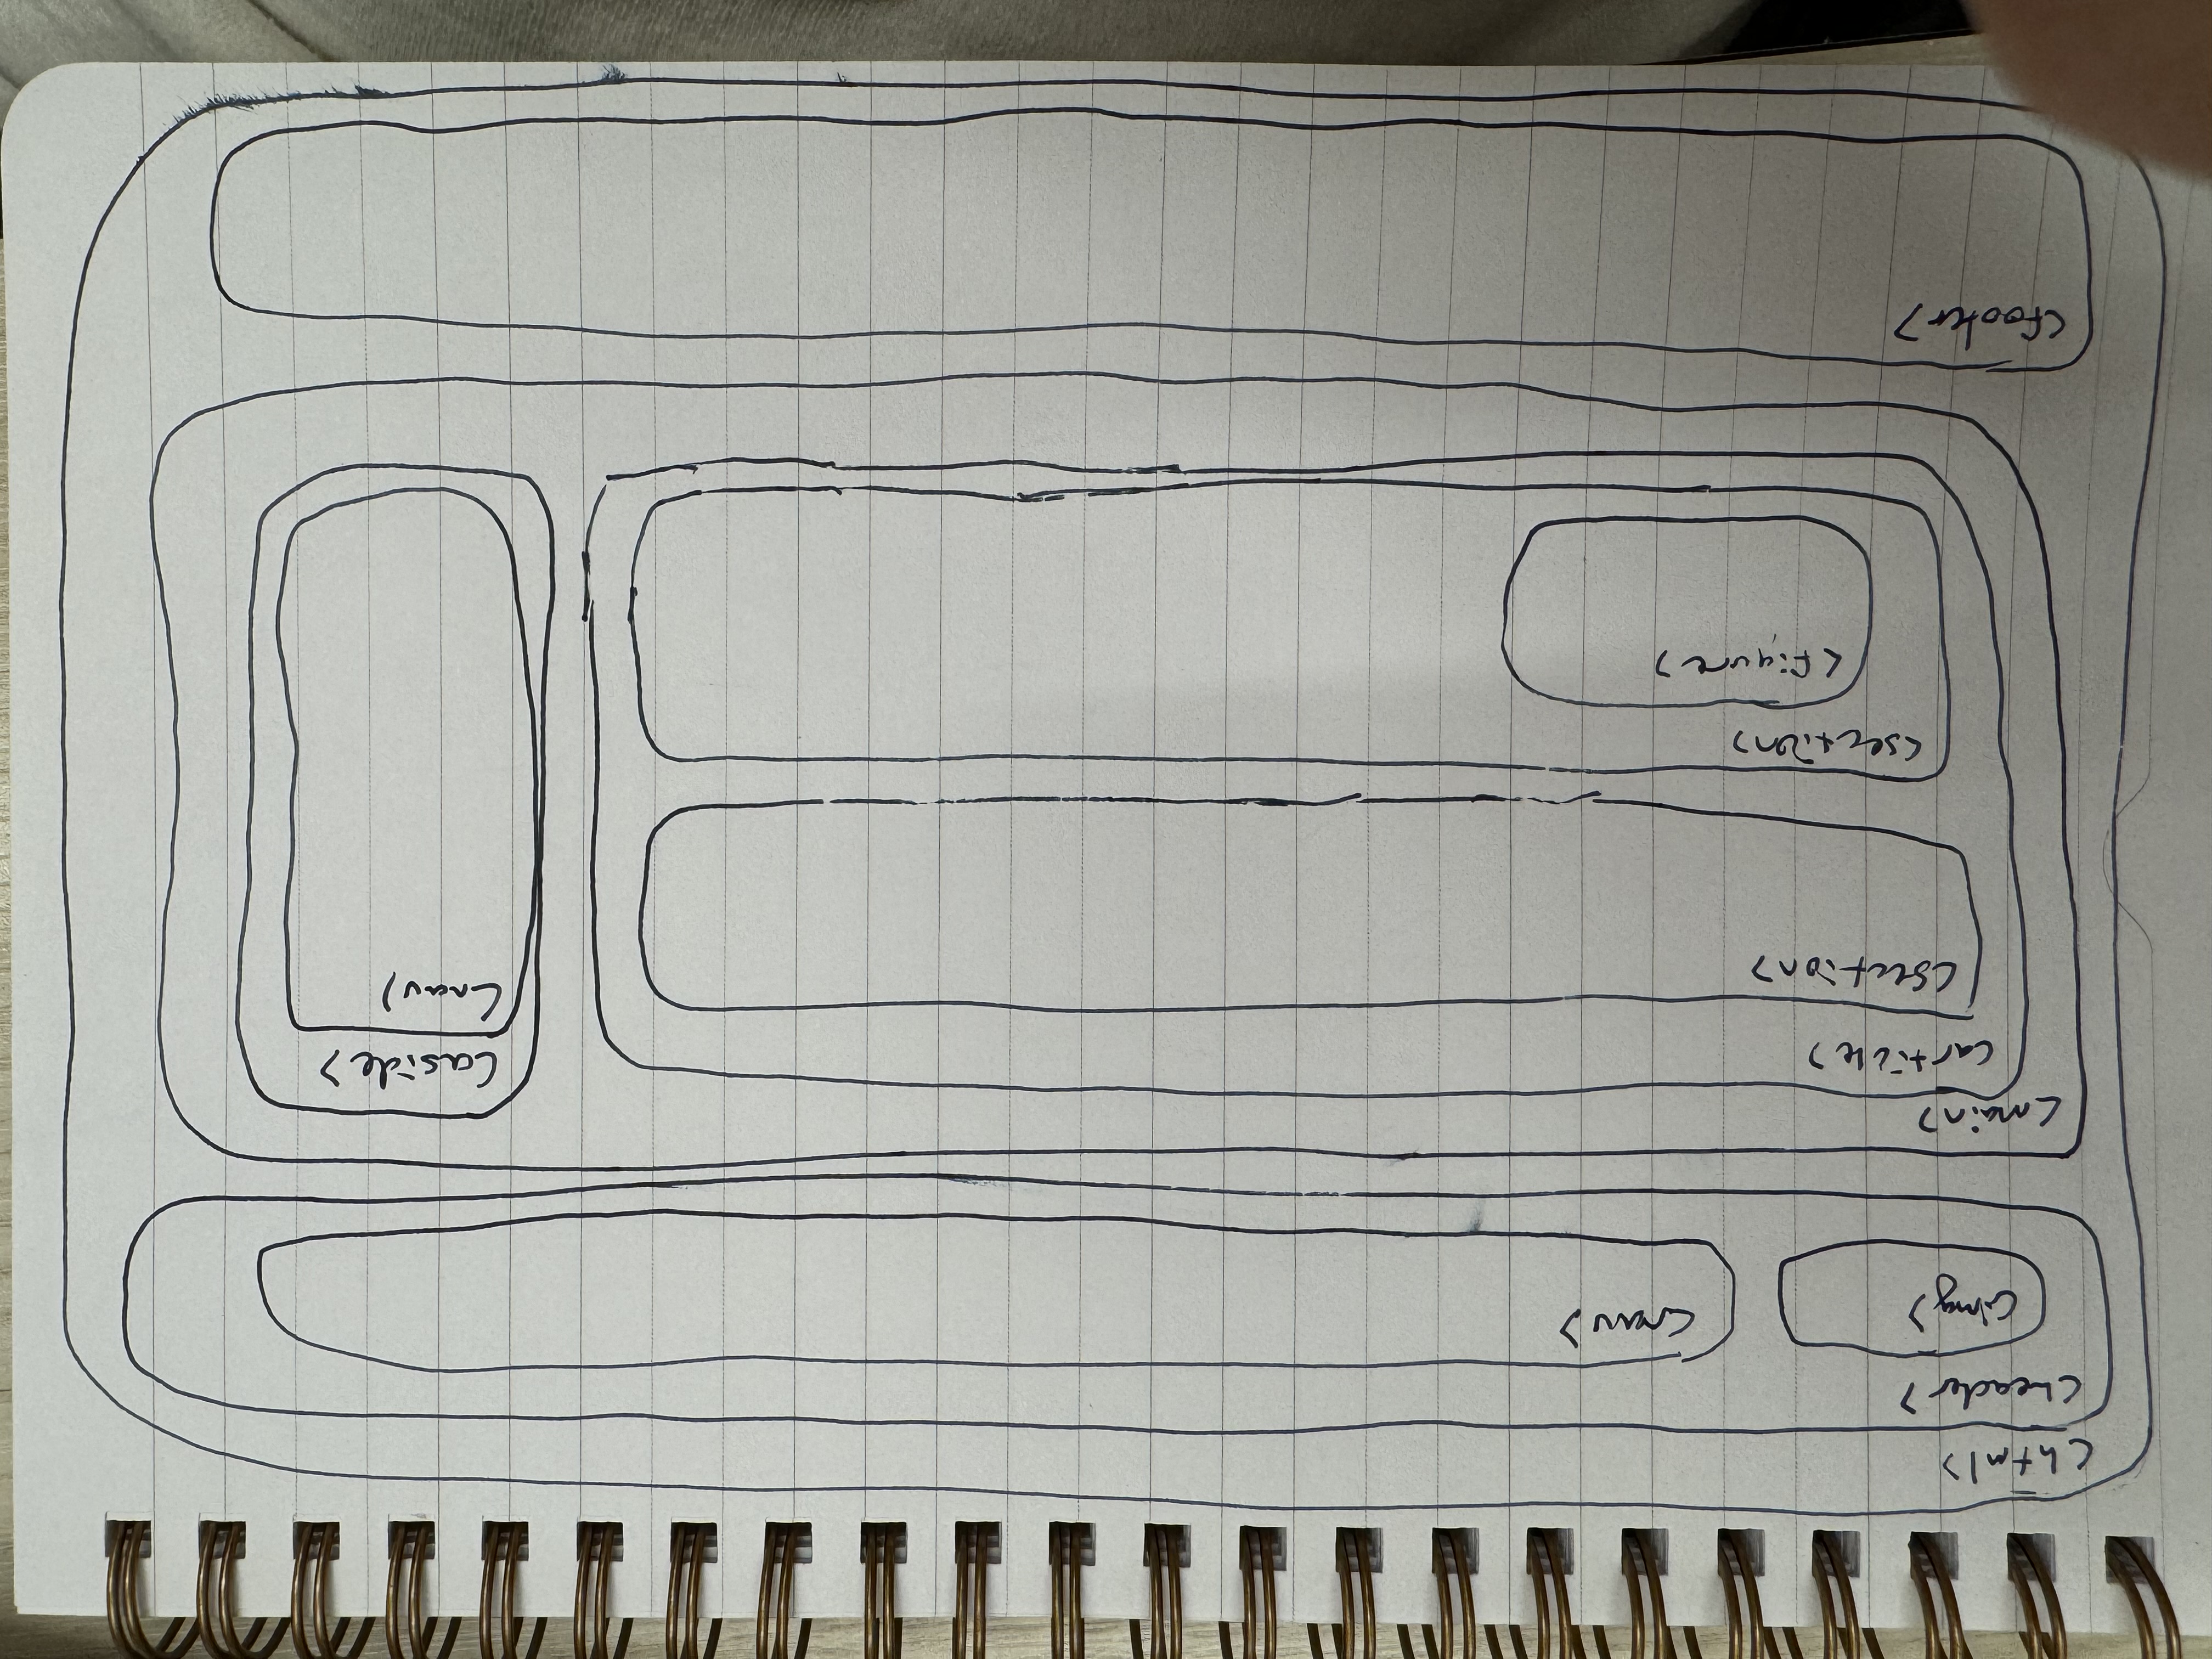 <html>
<header>
<img>
<nav>
<main>
<article>
<section>
<section>
<figure>
<aside>
<nav>
<footer>